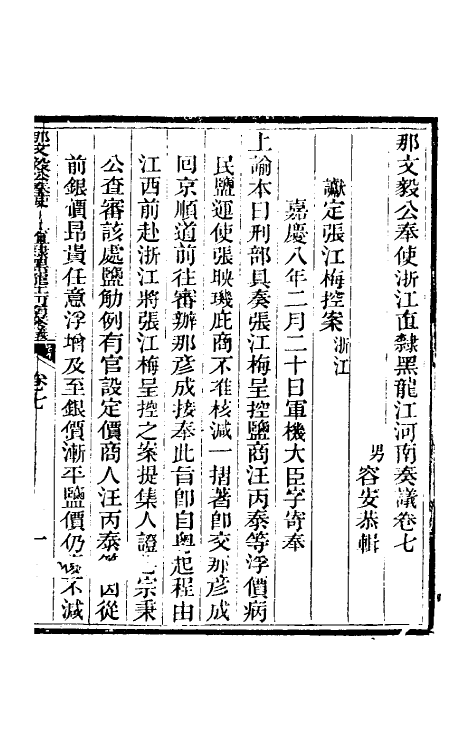 那文毅公奉使浙江直隸黑龍江河南奏議卷七
男容安恭輯
讞定張江梅控案 浙江
嘉慶八年二月二十日軍機大臣字寄奉
上諭本日刑部具奏張江梅呈控鹽商汪丙泰等浮價病
民鹽運使張映璣庇商不准核減一摺著卽交那彥成
回京順道前往審辦那彥成接奉此旨卽自粵起程由
江西前赴浙江將張江梅呈控之案提集人證 宗秉
公查審該處鹽觔例有官設定價商人汪丙泰等因從
前銀價昂貴任意浮增及至銀價漸平鹽價仍 不減
卷七
一